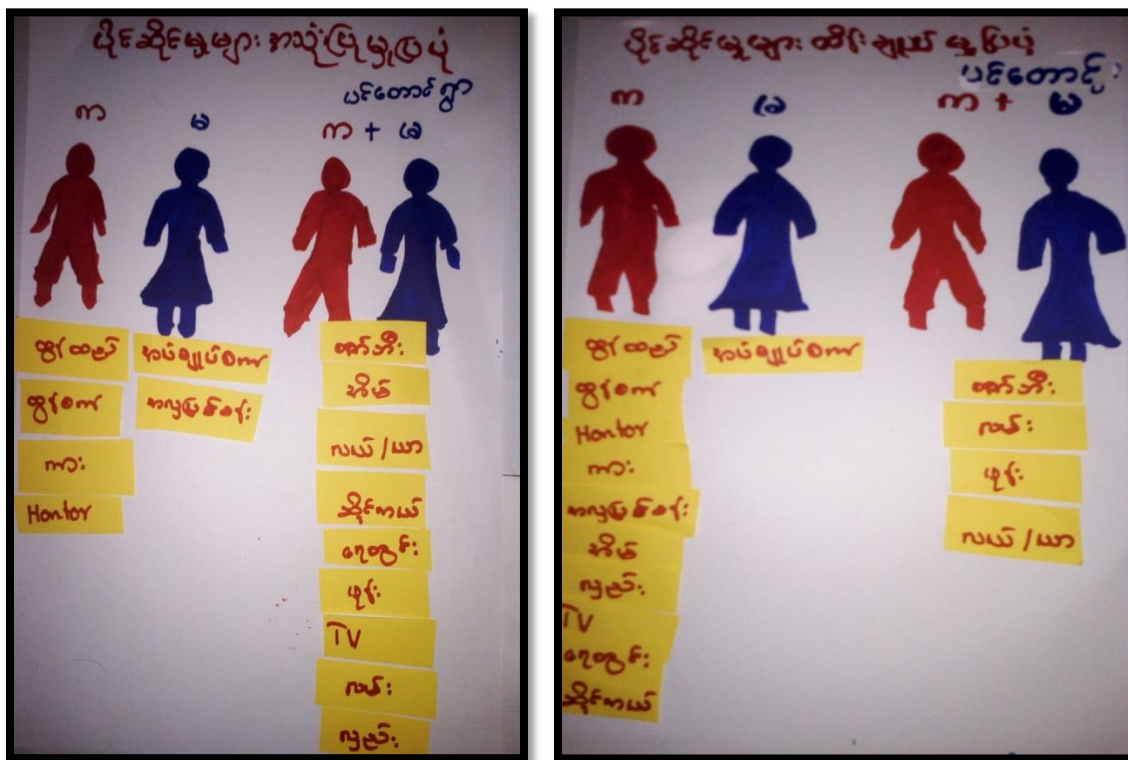 ပိုင်ဆိုင်မှုများ အသုံးပြုမှုပြပုံ
ပင်တောင်ရွာ
ကျား
မ
ကျား + မ
ထွန်ထည်
ထွန်စက်
ကား
Hontor
အပ်ချုပ်စက်
အလှပြင်ခန်း
စက်ဘီး
အိမ်
လယ် / ယာ
ဆိုင်ကယ်
ရေတွင်း
ဖုန်း
TV
လမ်း
လှည်း
ပိုင်ဆိုင်မှုများ ထိန်းချုပ်မှုပြပုံ
ပင်တောင်
ကျား
မ
ကျား + မ
ထွန်ထည်
ထွန်စက်
Hontor
ကား
အလှပြင်ခန်း
အိမ်
လှည်း
TV
ရေတွင်း
ဆိုင်ကယ်
အပ်ချုပ်စက်
စက်ဘီး
လမ်း
ဖုန်း
လယ် / ယာ